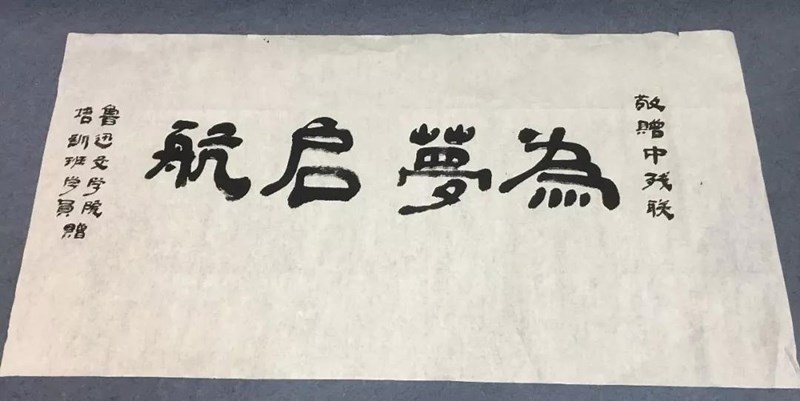 敬赠中残联
為夢启航
鲁迅文学院
培训班学员赠